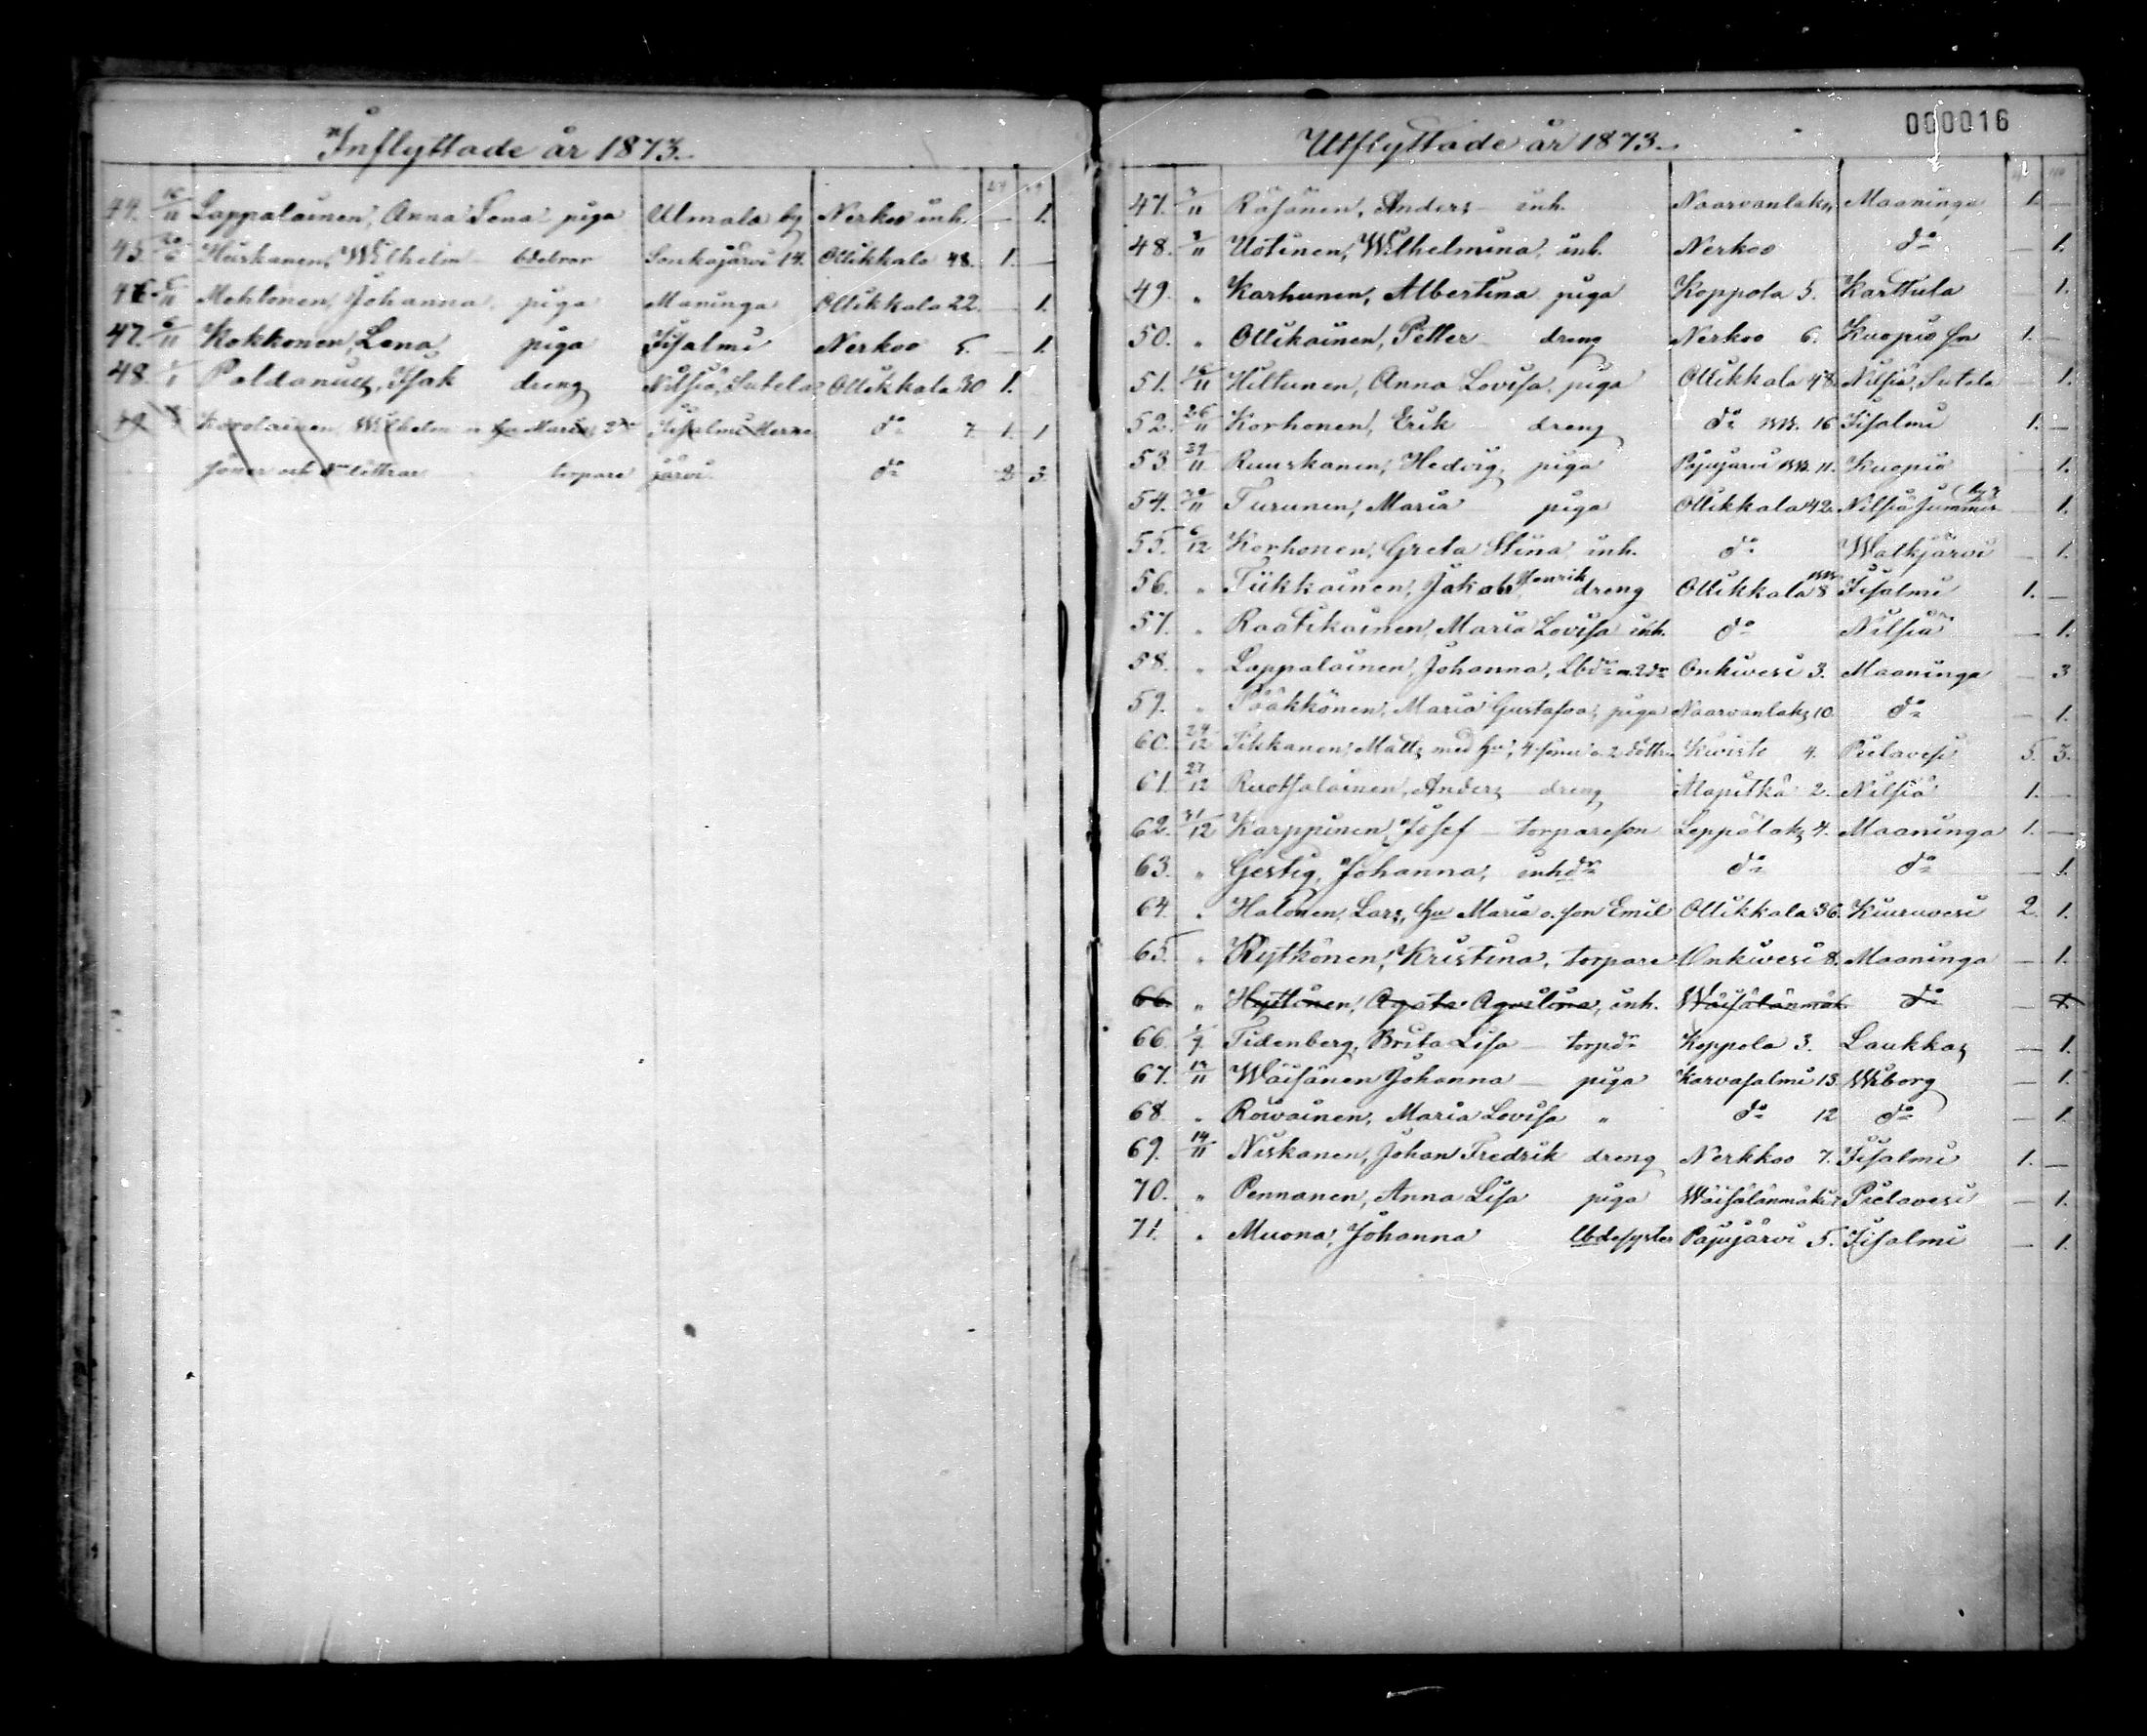 Inflyttade år 1873.
44. 16/11 Lappalainen, Anna Lena piga Ulmala by Nerkoo inh. — 1.
45. Huskanen, Wilhelm Sonkajärvi 14. Ollikkala 48. 1. —
46. Mehtonen, Johanna, piga Maninga Ollikkala 22. — 1.
47. Kokkonen, Lena piga Iisalmi Nerkoo 5. — 1.
48. Paldanius, Isak dreng Nilsiä, Sutela Ollikkala 30 1.
49 Karolainen, Wilhelm Iisalmi d:o 7. 1. 1
söner och döttrar torpare järvi d:o 2 3.
000016
Utflyttade år 1873.
47. 3/11 Räsänen, Anders inh. Naarvanlaks, Maaninga 1. —
48. 3/11 Uotinen, Wilhelmina, inh. Nerkoo d:o — 1.
49. " Karhunen, Albertina piga Koppola 5. Karttula 1.
50. " Ollikainen, Petter dreng Nerkoo 6. Kuopio sn 1. —
51. 16/11 Hiltunen, Anna Lovisa, piga Ollikkala 48. Nilsiä, Sutela — 1.
52. 26/11 Korhonen, Erik dreng d:o 16 Iisalmi 1. —
53. 29/11 Ruuskanen, Hedvig, piga Pajujärvi 11. Kuopio 1.
54. Turunen, Maria piga Ollikkala 42. Nilsiä — 1.
55. 6/12 Korhonen, Greta Stina inh. d:o Walkjärvi — 1.
56. " Tiikkainen, Jakob Henrik dreng Ollikkala 8 Iisalmi 1. —
57. " Raatikainen, Maria Lovisa inh. d:o Nilsiä — 1.
58. " Lappalainen, Johanna, Onkivesi 3. Maaninga — 3
59. " Pääkkönen, Maria Gustafva, piga Naarvanlaks 10. d:o — 1.
60. 24/12 Tikkanen, Matts med hu, 4 söner o. 2 döttr. 4. Pielavesi 5. 3.
61. 27/12 Ruotsalainen, Anders dreng Mapitkä 2. Nilsiä 1. —
62. 31/12 Karppinen, Josef torpareson Leppälaks 4. Maaninga 1. —
63. " Gestig, Johanna, inhdr d:o d:o — 1.
64. " Halonen, Lars, hu Maria o. son Emil Ollikkala 36. Kiuruvesi 2. 1.
65. " Rytkönen, Kristina, torpare Onkivesi 8. Maaninga — 1.
66. " Hyttinen, Agata Agustina, inh. Wäisälänmäk d:o — 1.
66. Tidenberg, Brita Lisa torpdr Koppola 3. Laukkas — 1.
67. Wäisänen Johanna piga Karvasalmi 13. Wiborg — 1.
68. " Rowainen, Maria Lovisa " d:o 12 d:o — 1.
69. 14/11 Niskanen, Johan Fredrik dreng Nerkkoo 7. Iisalmi 1. —
70. " Pennanen, Anna Lisa piga Wäisälänmäki Pielavesi — 1.
71. " Muona, Johanna lbdesyster Pajujärvi 5. Iisalmi — 1.